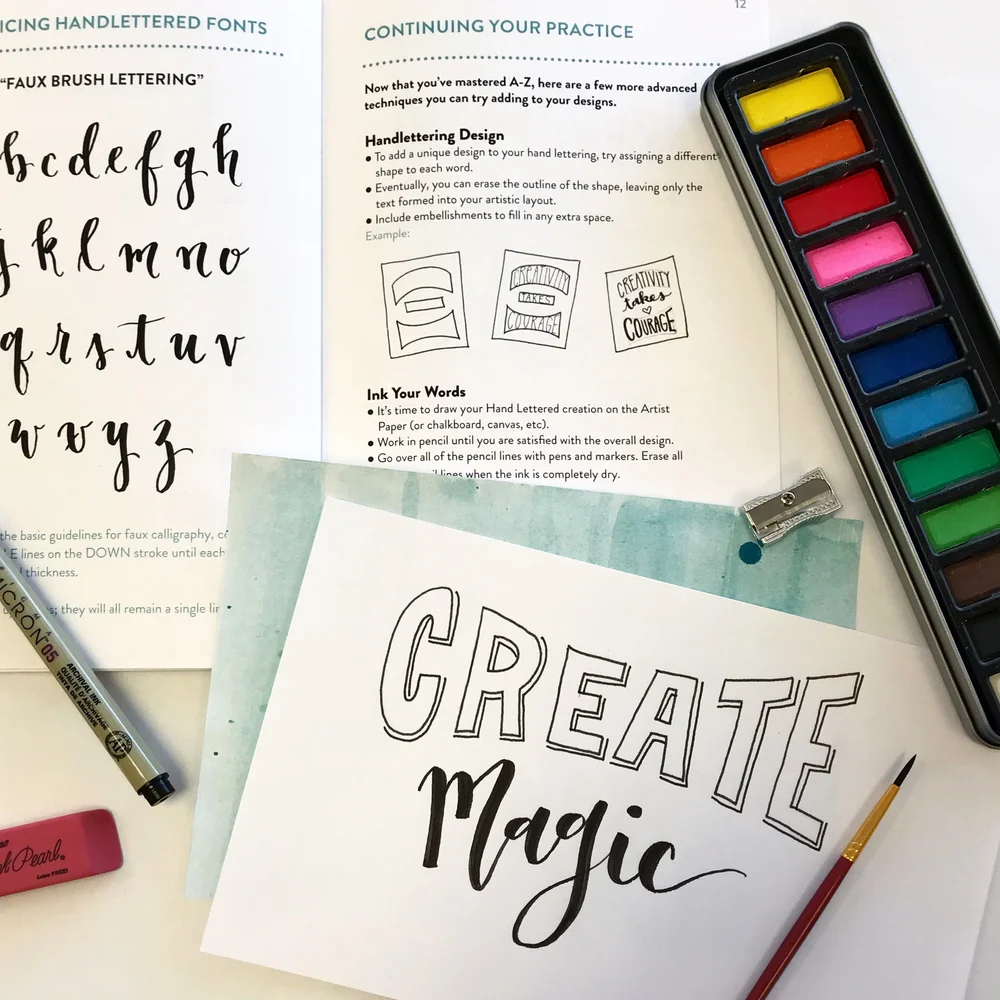 ICING HANDLETTERED FONTS
"FAUX BRUSH LETTERING"
b c d e f g h
j k l m n o
q r s t u v
w x y z
the basic guidelines for faux calligraphy,
lines on the DOWN stroke until each
thickness.
they will all remain a single
12
CONTINUING YOUR PRACTICE
Now that you've mastered A-Z, here are a few more advanced
techniques you can try adding to your designs.
Handlettering Design
• To add a unique design to your hand lettering, try assigning a different
shape to each word.
• Eventually, you can erase the outline of the shape, leaving only the
text formed into your artistic layout.
• Include embellishments to fill in any extra space.
Example:
CREATIVITY
TAKES
COURAGE
CREATIVITY
takes
COURAGE
Ink Your Words
• It's time to draw your Hand Lettered creation on the Artist
Paper (or chalkboard, canvas, etc).
• Work in pencil until you are satisfied with the overall design.
• Go over all of the pencil lines with pens and markers. Erase all
lines when the ink is completely dry.
MICRON 05
ARCHIVAL INK
QUALITÉ D'ARCHIVAGE
TINTA DE ARCHIVE
Pearl®
CREATE
Magic